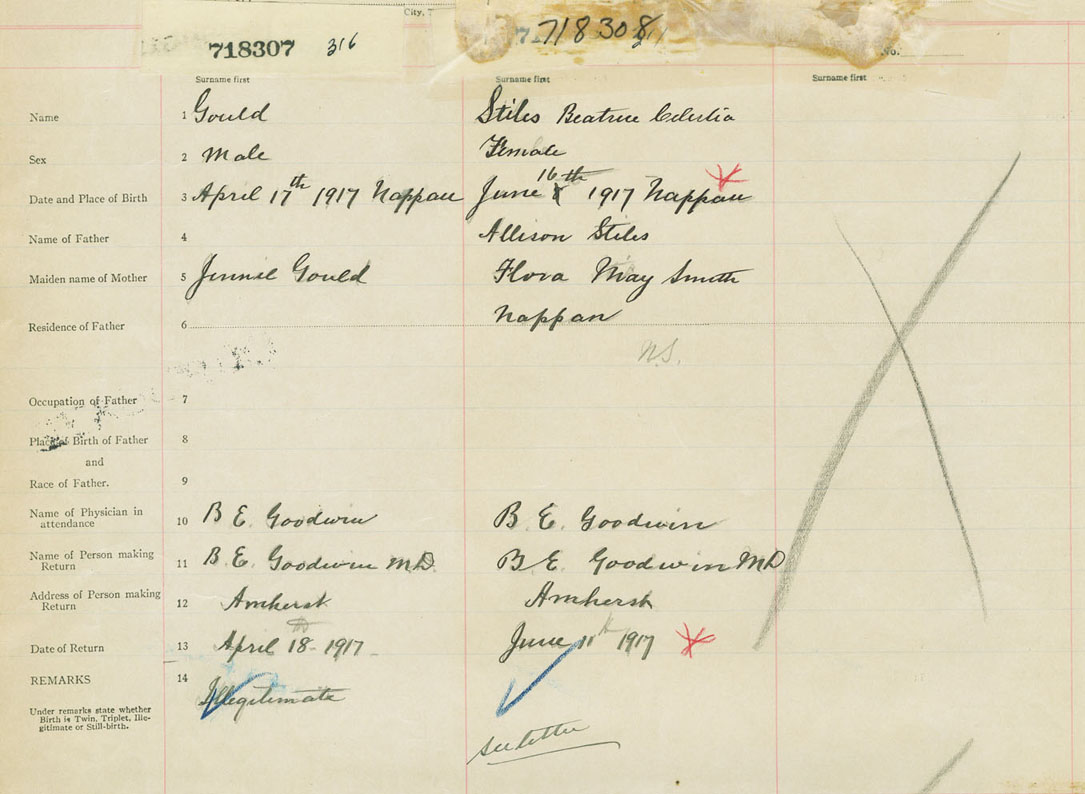 City, T
718307 316
718308
No.
Surname first Surname first Surname first
Name 1 Gould Stiles Beatrice Celestia
Sex 2 Male Female
16th
Date and Place of Birth 3 April 17th 1917 Nappan June 1917 Nappan
Name of Father 4 Allison Stiles
Maiden name of Mother 5 Jennie Gould Flora May Smith
Residence of Father 6 Nappan
N.S.
Occupation of Father 7
Place of Birth of Father 8
and
Race of Father. 9
Name of Physician in
attendance 10 B E. Goodwin B. E. Goodwin
Name of Person making
Return 11 B. E. Goodwin MD. B E. Goodwin MD
Address of Person making
Return 12 Amherst Amherst
Date of Return 13 April 18- 1917 June 11th 1917
REMARKS 14 Illegitimate
Under remarks state whether
Birth is Twin, Triplet, Ille-
gitimate or Still-birth.
see letter